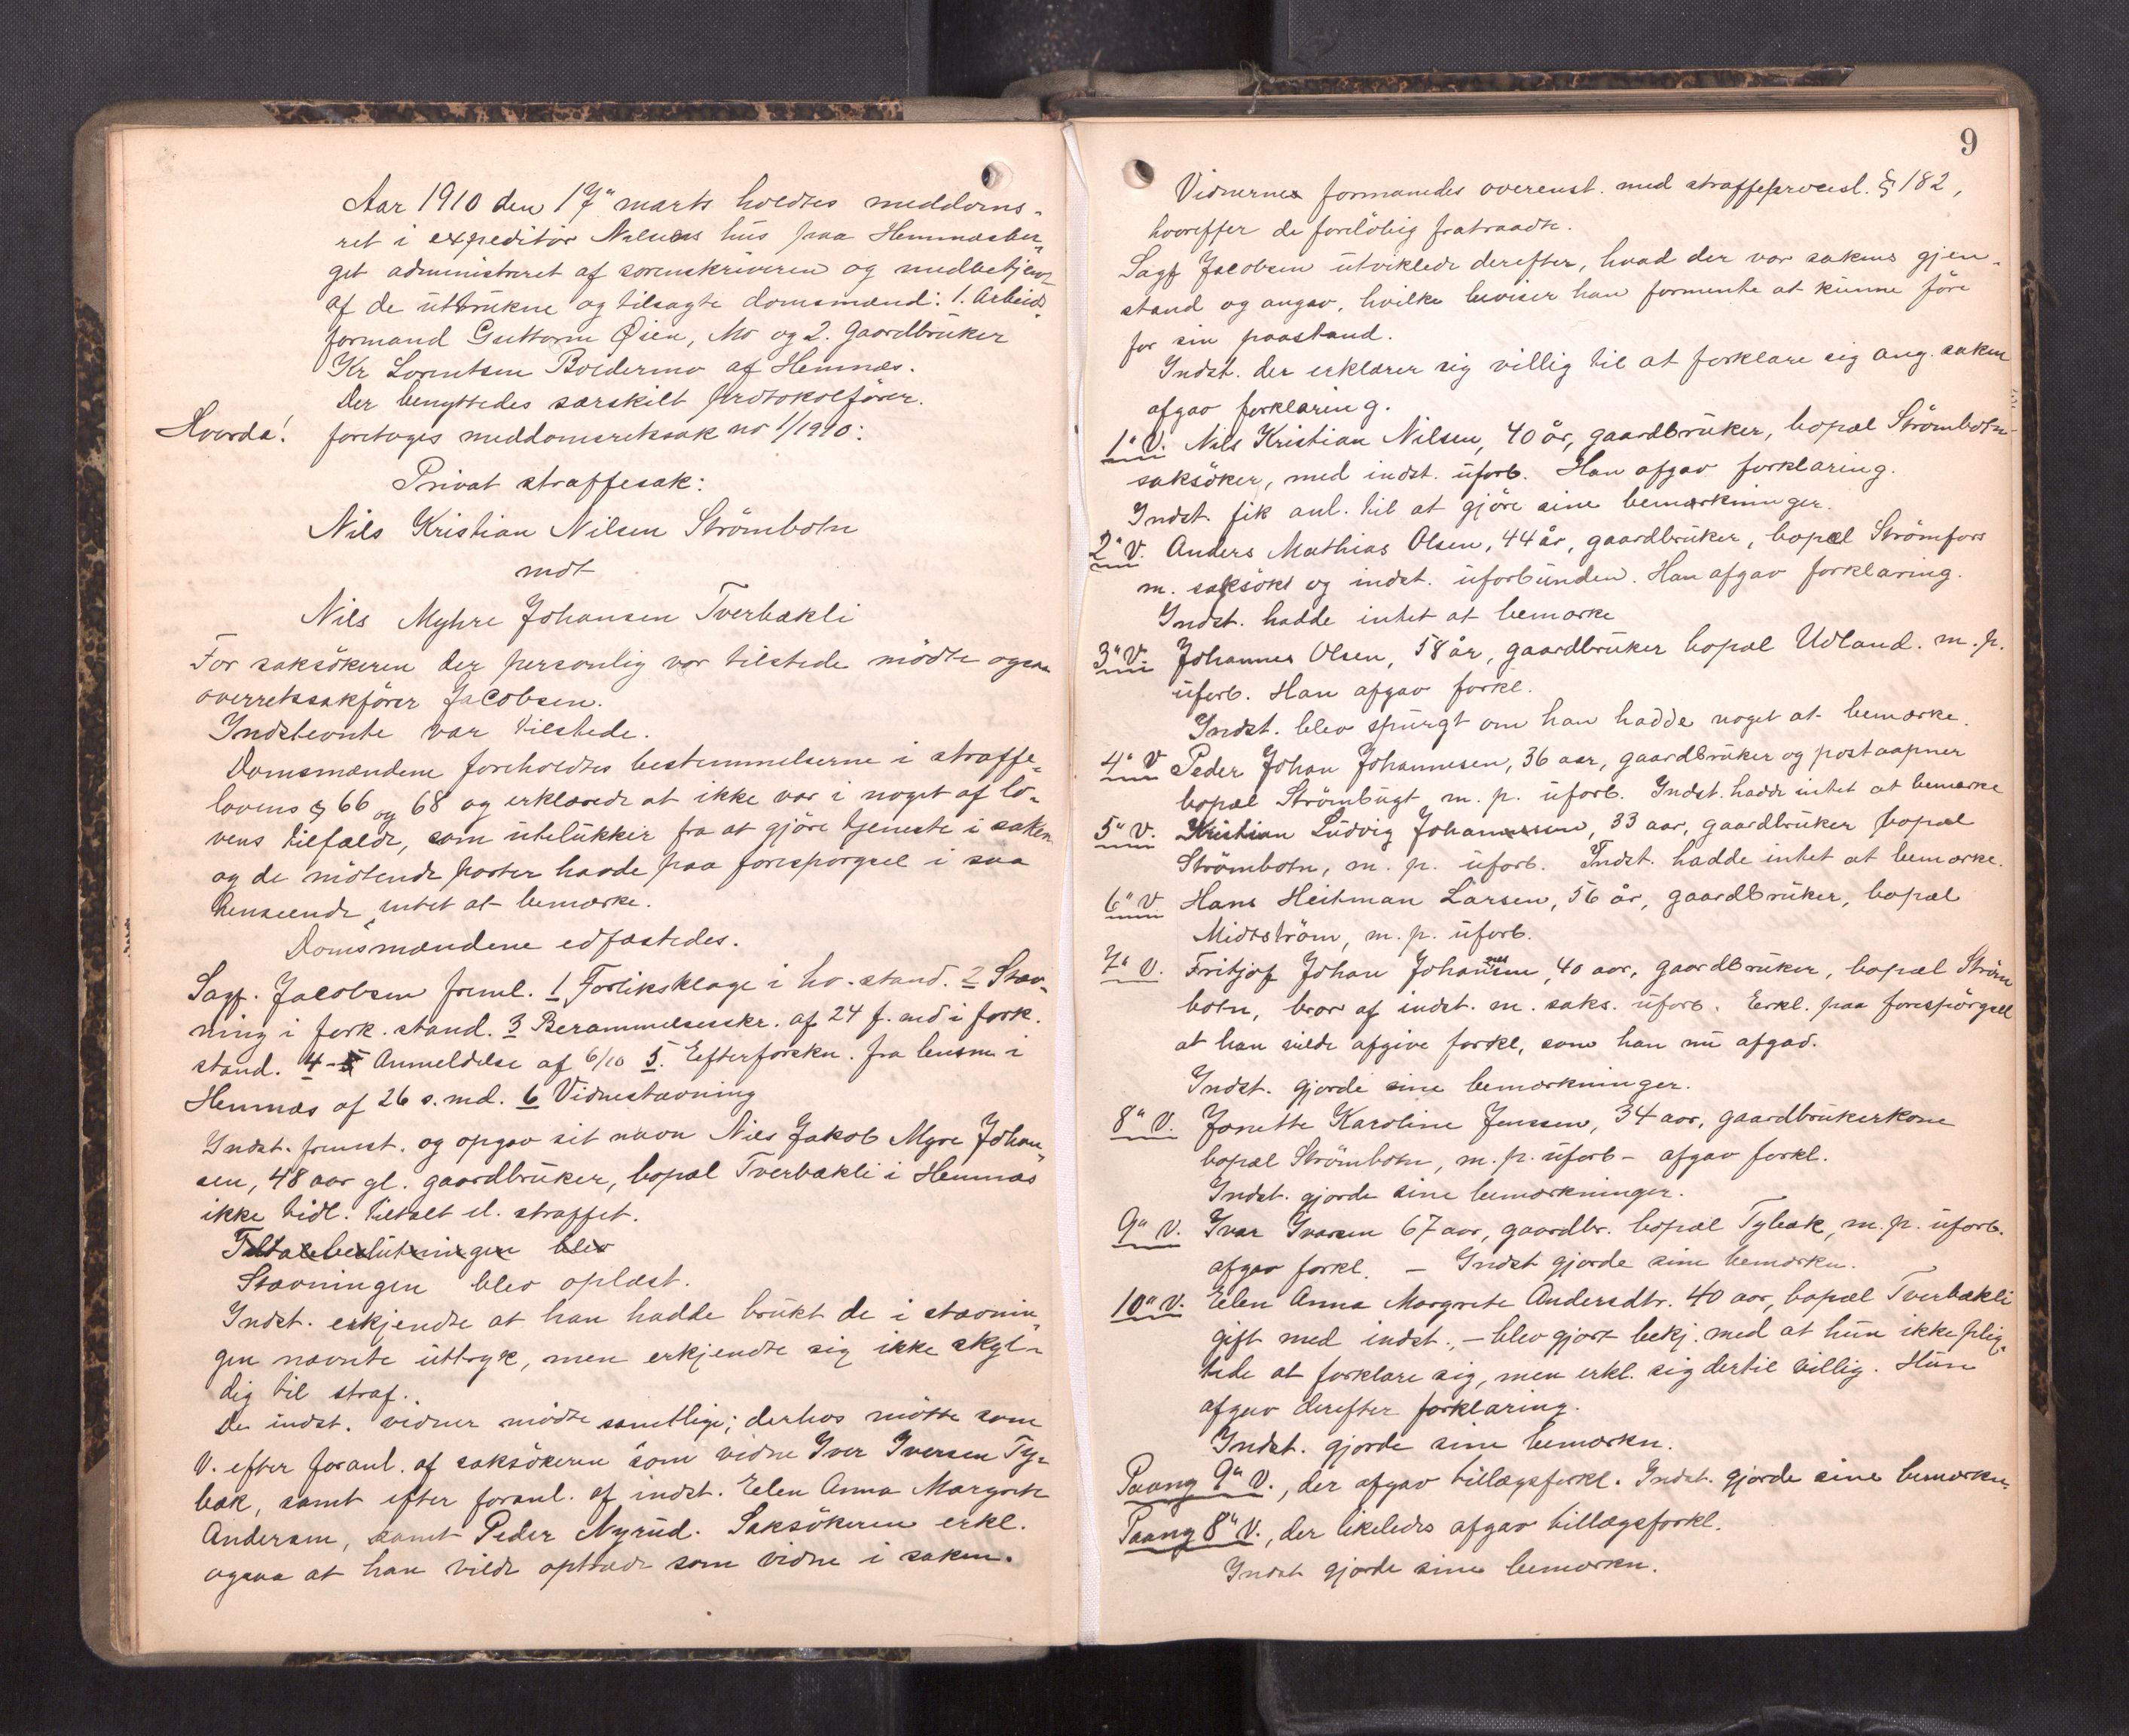 Aar 1910 den 17" marts holdtes meddoms-
ret i expeditør Nilsens hus paa Hemnæsber-
get administreret af sorenskriveren og medbetjent
af de uttrukne og tilsagte domsmænd: 1. Arbeids-
formand Guttorm Øien, Mo og 2. Gaardbruker
Kr Lorntsen Boldermo af Hemnæs.
Der benyttedes særskilt protokolfører.
Hvorda! foretoges meddomsretssak no 1/1910:
Privat straffesak:
Nils Kristian Nilsen Strömbotn
mot
Nils Myhre Johansen Tverbækli
For saksökeren der personlig var tilstede mödte ogsaa
overretssakförer Jacobsen.
Indstevnte var tilstede.
Domsmændene foreholdtes bestemmelserne i straffe-
lovens § 66 og 68 og erklærede at ikke var i noget af lo-
vens tilfælde, som utelukker fra at gjöre tjeneste i saken
og de mötende parter havde paa forespörgsel i saa
henseende intet at bemærke.
Domsmændene edfæstedes.
Sagf. Jacobsen freml. 1 Forliksklage i ho.stand. 2 Stæv-
ning i fork. stand. 3 Berammelsesskr. af 24 f. md i fork.
stand. 4 - 5 Anmeldelse af 6/10 5. Efterforskn. fra lensm i
Hemnæs af 26 s. md. 6 Vidnestævning
Indst. fremst. og opgav sit navn Nils Jakob Myre Johan-
sen, 48 aar gl. gaardbruker, bopæl Tverbækli i Hemnæs
ikke tidl. tiltalt el. straffet.
Tiltalebeslutningen blev
Stævningen blev oplæst.
Indst. erkjendte at han hadde brukt de i stævnin-
gen nævnte uttryk, men erkjendte sig ikke skyl-
dig til straf.
De indst. vidner mödte samtlige; derhos mötte som
V. efter foranl. af saksökeren som vidne Iver Iversen Ty-
bæk, samt efter foranl. af indst. Elen Anna Margrete
Andersen, samt Peder Nyrud. Saksökeren erkl.
ogsaa at han vilde optræde som vidne i saken.
9
Vidnerne formanedes overenst. med straffeprocesl. § 182,
hvorefter de forelöbig fratraadte.
Sagf Jacobsen utviklede derefter, hvad der var sakens gjen-
stand og angav, hvilke beviser han formente at kunne före
for sin paastand.
Indst. der erklærer sig villig til at forklare sig ang. saken
afgav forklaring.
1" V. Nils Kristian Nilsen, 40 år, gaardbruker, bopæl Strömbotn
saksöker, med indst. uforb. Han afgav forklaring.
Indst. fik anl. til at gjöre sine bemærkninger.
2" V. Anders Mathias Olsen, 44 år, gaardbruker, bopæl Strömfors
m. saksökr og indst. uforbunden. Han afgav forklaring.
Indst. hadde intet at bemærke
3" V. Johannes Olsen, 58 år, gaardbruker bopæl Udland. m. p.
uforb. Han afgav forkl.
Indst. blev spurgt om han hadde noget at bemærke.
4" V Peder Johan Johannesen, 36 aar, gaardbruker og postaapner
bopæl Strömbugt m. p. uforb. Indst. hadde intet at bemærke
5" V. Kristian Ludvig Johannessen, 33 aar, gaardbruker bopæl
Strömbotn, m. p. uforb. Indst. hadde intet at bemærke.
6" V Hans Heitman Larsen, 56 år, gaardbruker, bopæl
Midtström, m. p. uforb.
7" V. Fritjof Johan Johansen, 40 aar, gaardbruker, bopæl Ström
botn, bror af indst. m. saks. uforb. Erkl. paa forespörgsel
at han vilde afgive forkl, som han nu afgav.
Indst. gjorde sine bemærkninger.
8" V. Janette Karoline Jenssen, 34 aar, gaardbrukerkone
bopæl Strömbotn, m. p. uforb - afgav forkl.
Indst. gjorde sine bemærkninger.
9" V. Ivar Ivarsen 67 aar, gaardbr. bopæl Tybæk, m. p. uforb.
afgav forkl. - Indst gjorde sine bemærkn.
10" V. Elen Anna Margrete Andersdtr. 40 aar, bopæl Tverbækli
gift med indst., - blev gjort bekj. med at hun ikke plig-
tede at forklare sig, men erkl. sig dertil villig. Hun
afgav derefter forklaring.
Indst. gjorde sine bemærkn.
Paany 9" V., der afgav tillægsforkl. Indst. gjorde sine bemærkn.
Paany 8" V., der likeledes afgav tillægsforkl.
Indst gjorde sine bemærkn.